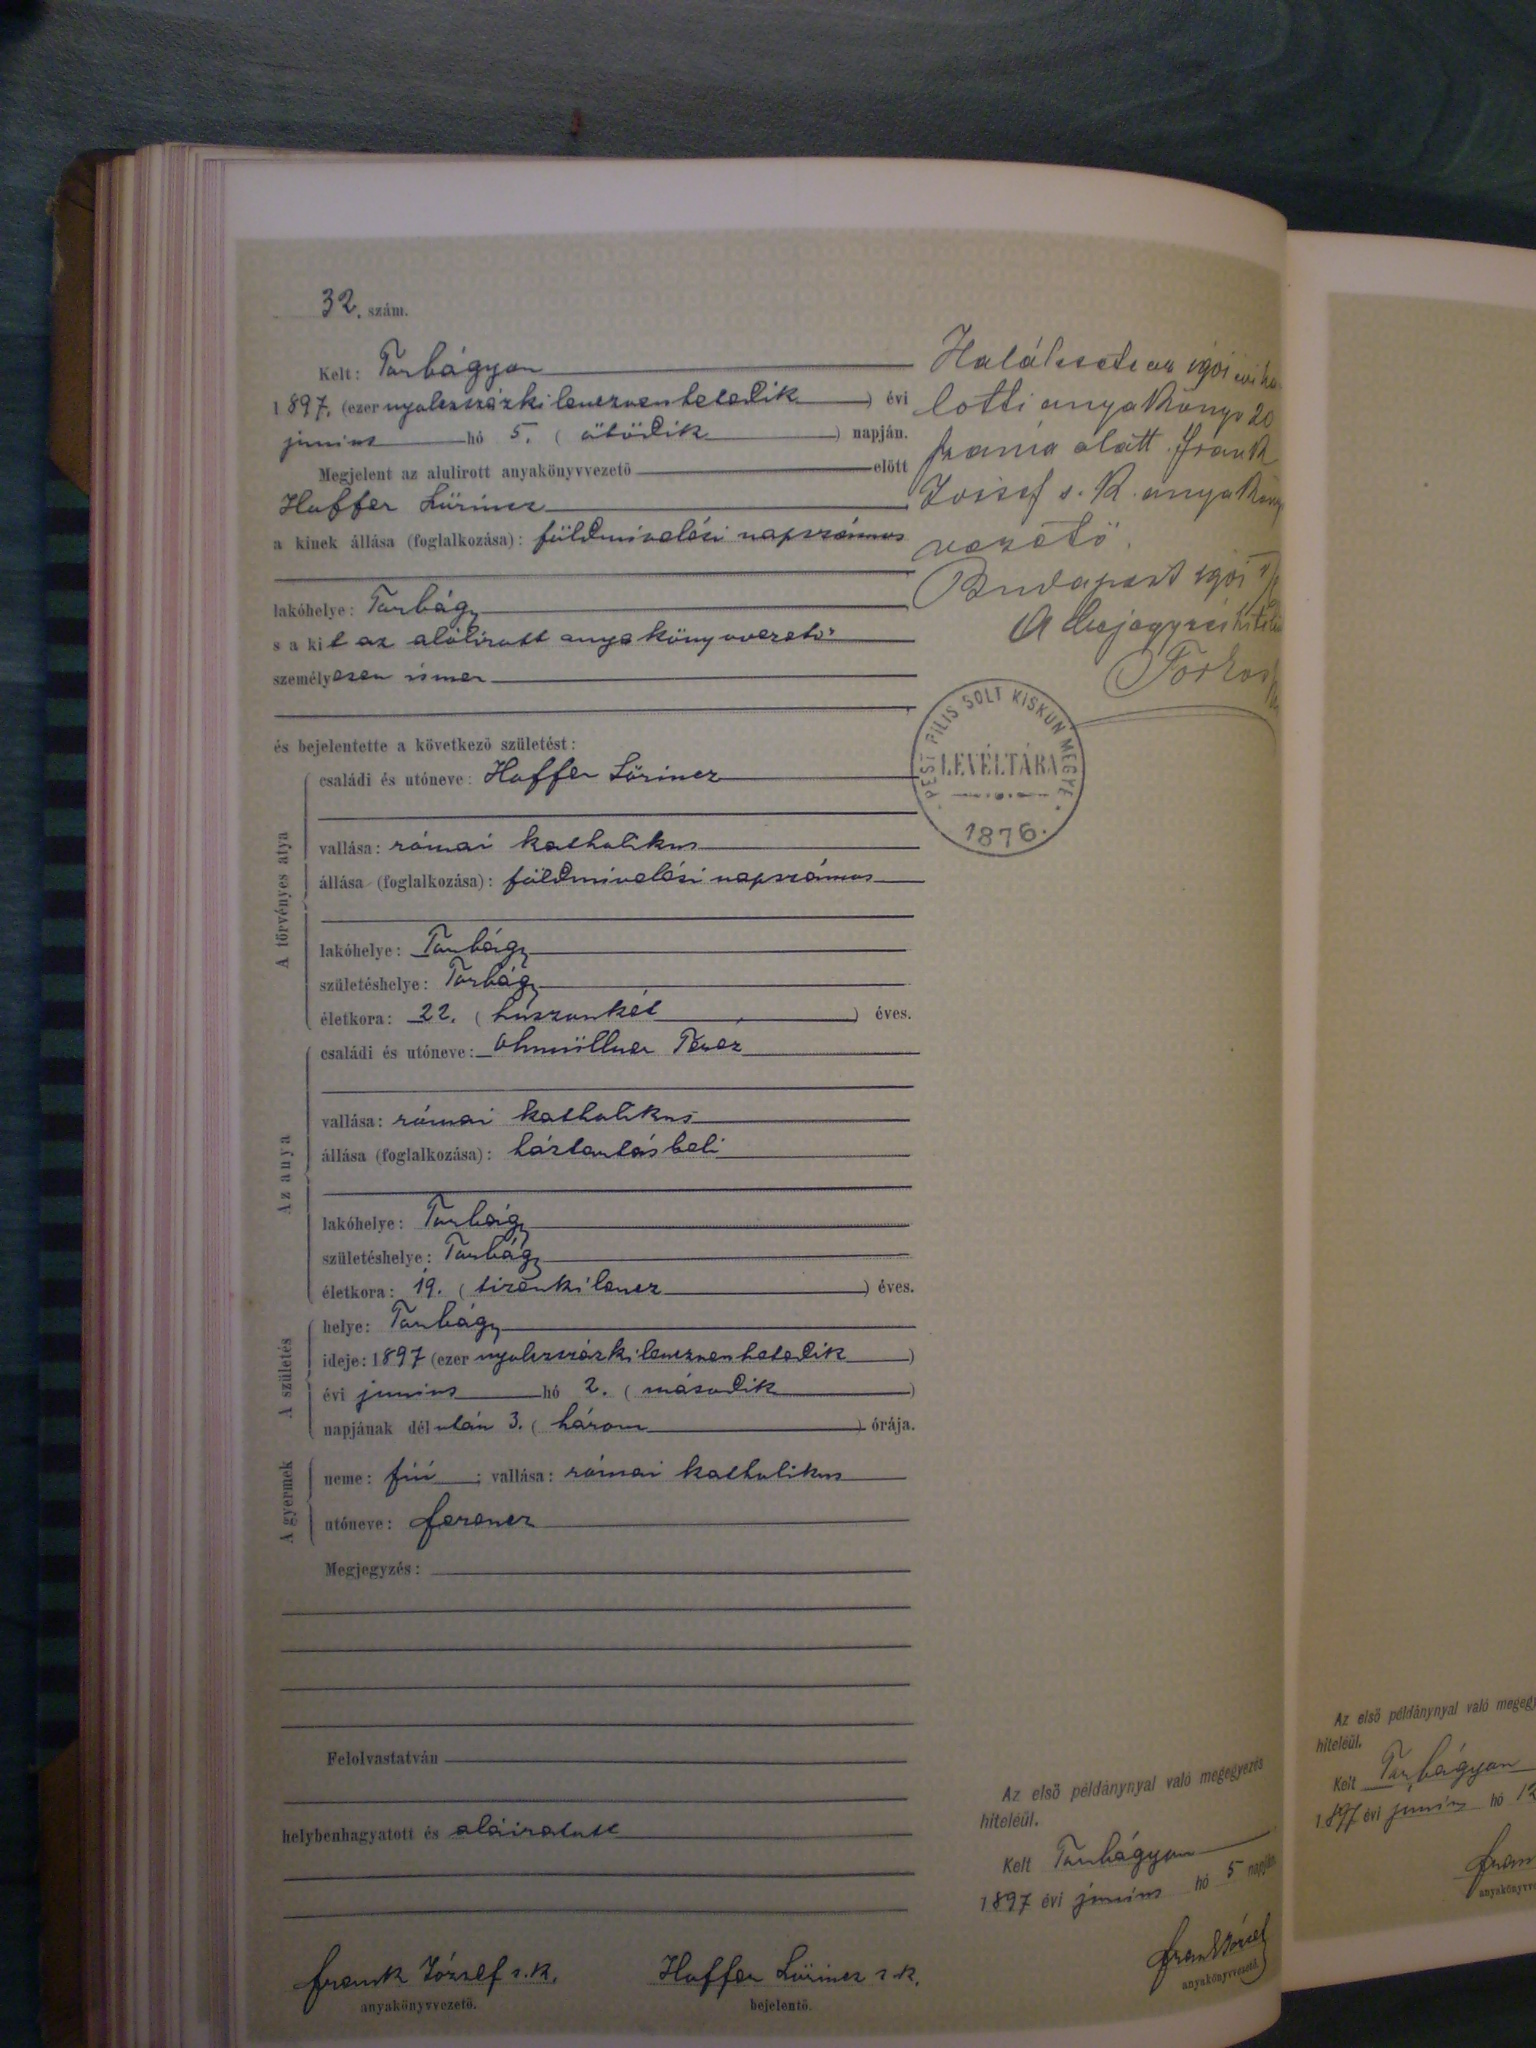 32. szám.
Kelt: Torbágyon
1897. (ezer nyolczszázkilenczvenhetedik) évi
junius hó 5. (ötödik) napján.
Megjelent az alulirott anyakönyvvezető előtt
Hoffer Lőrincz
a kinek állása (foglalkozása): földmivelési napszámos
lakóhelye: Torbágy
s a kit az alólirott anyakönyvvezető
személyesen ismer
és bejelentette a következő születést:
A törvényes atya
családi és utóneve: Hoffer Lőrincz
vallása: római katholikus
állása (foglalkozása): földmivelési napszámos
lakóhelye: Torbágy
születéshelye: Torbágy
életkora: 22. (huszonkét) éves.
Az anya
családi és utóneve: Ohmüllner Teréz
vallása: római katholikus
állása (foglalkozása): háztartásbeli
lakóhelye: Torbágy
születéshelye: Torbágy
életkora: 19. (tizenkilencz) éves.
A születés
helye: Torbágy
ideje: 1897 (ezer nyolczszázkilenczvenhetedik)
évi junius hó 2. (második)
napjának dél után 3. (három) órája.
A gyermek
neme: fiú; vallása: római katholikus
utóneve: Ferencz
Megjegyzés:
Felolvastatván
helybenhagyatott és aláiratott
Frank József s.k.
anyakönyvvezető.
Hoffer Lőrincz s.k.
bejelentő.
lotti anyakönyv 20
alatt. Frank
József s. k. anyaköny
vezető.
Budapest
A bejegyzés
PEST PILIS SOLT KISKUN MEGYE
LEVÉLTÁRA
1876.
Az első példánynyal való megegyezés
hiteléül.
Kelt Torbágyon
1897 évi junius hó 5 napján
Frank József
anyakönyvvezető.
Az első példánynyal való
hiteléül.
Kelt Torbágyon
1897 évi junius hó 12